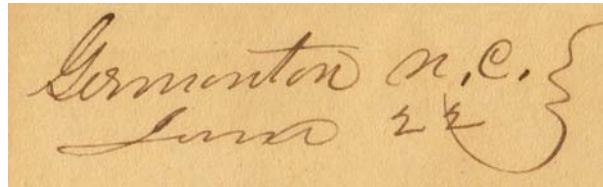 Germonton N.C.
June 22